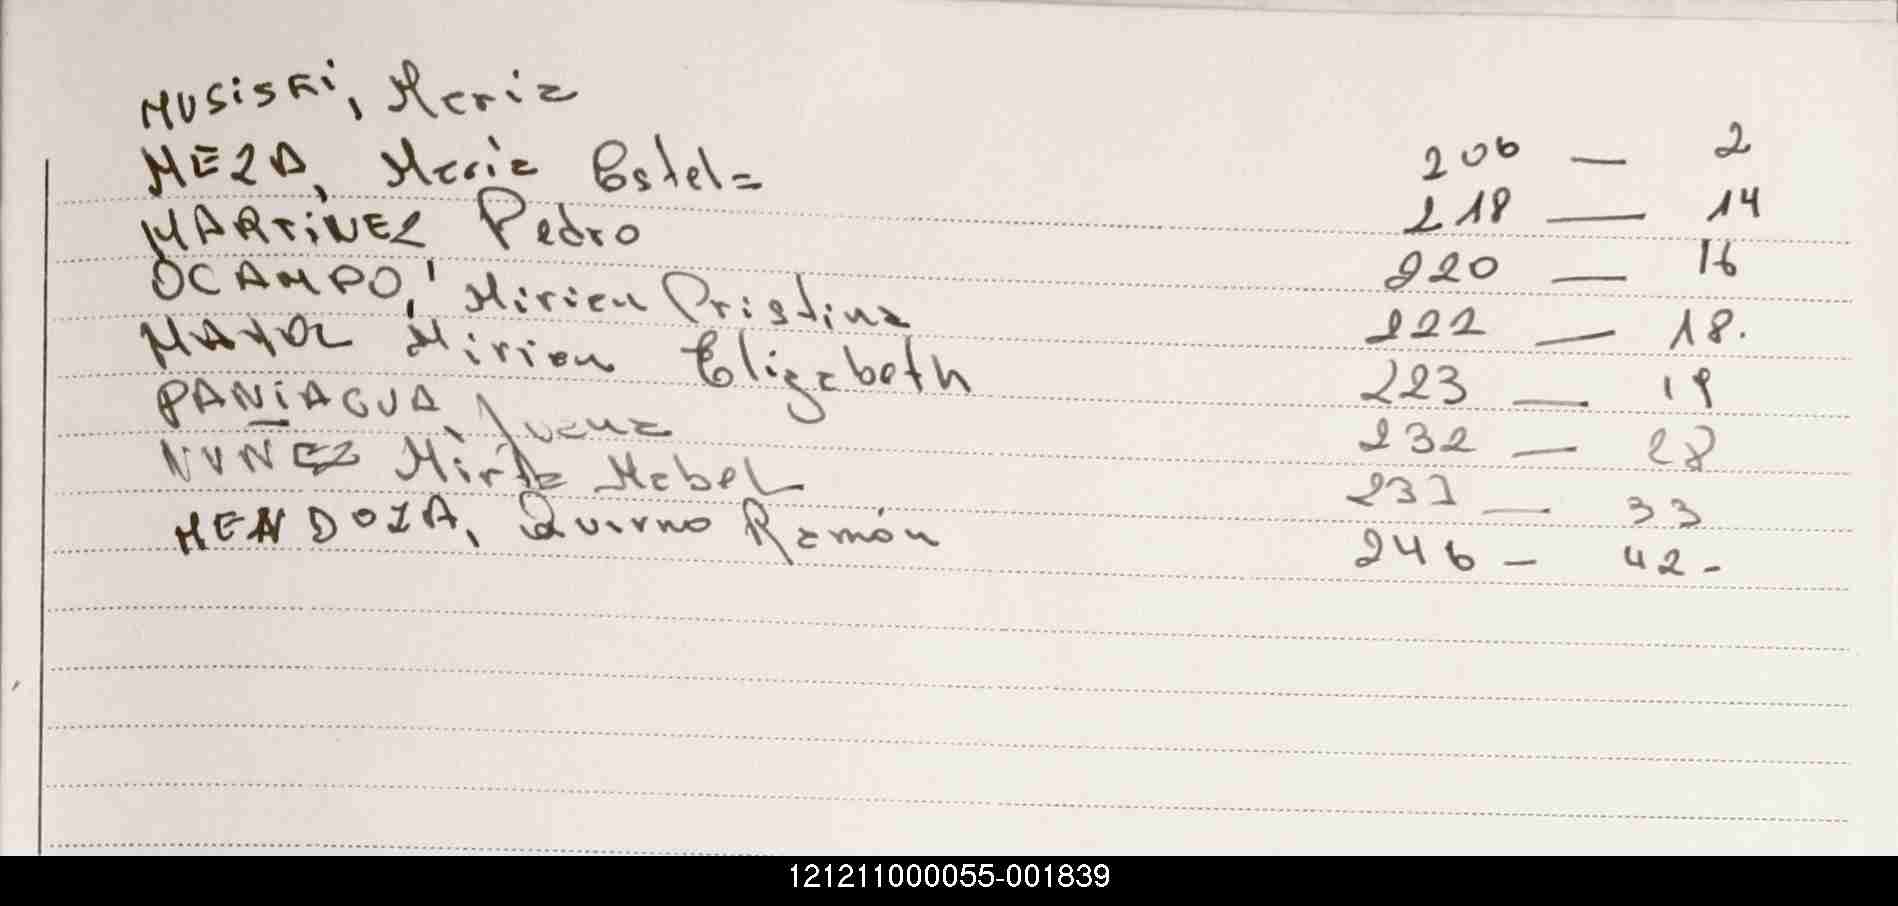 MUSiSKi, Maria 206 — 2
MEZA, Maria Estela 218 — 14
MARTiNEZ Pedro 220 — 16
OCAMPO, Mirian Cristina 222 — 18.
MAYOL Mirian Elizabeth 223 — 19
PANiAGUA, Juana 232 — 28
NUÑEZ Mirta Mabel 237 — 33
MENDOZA, Quirno Ramón 246 - 42-
121211000055-001839